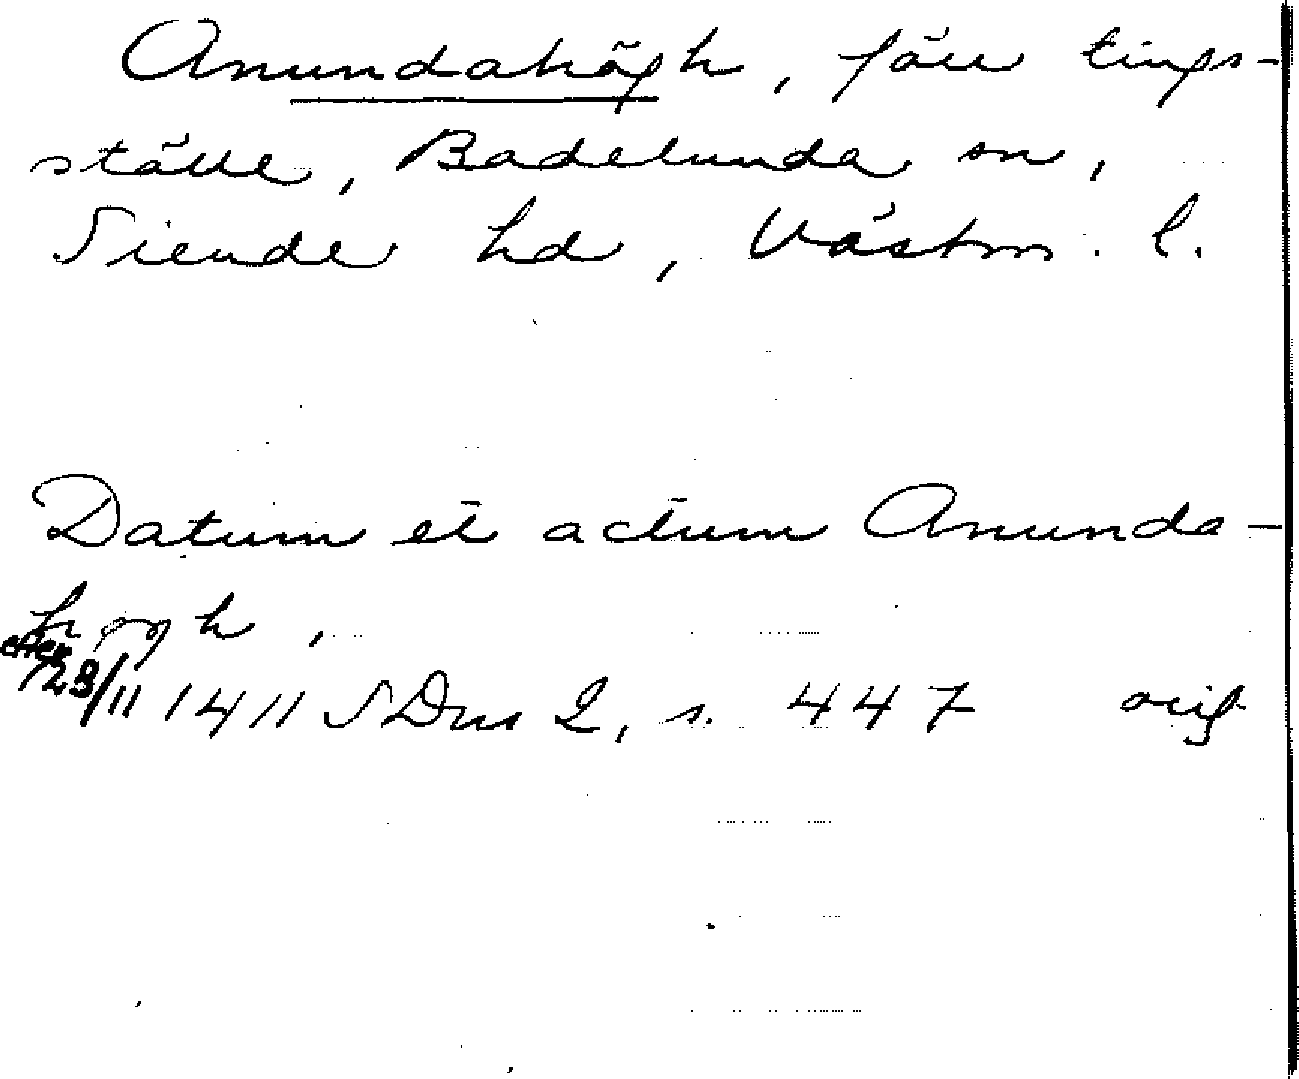 Anundahögh, förr tings-
ställe, Badelunda sn,
Siende hd, Västm. l.
Datum et actum Anunda-
høgh,
efter
23/11 1411 SDns 2, s. 447 orig